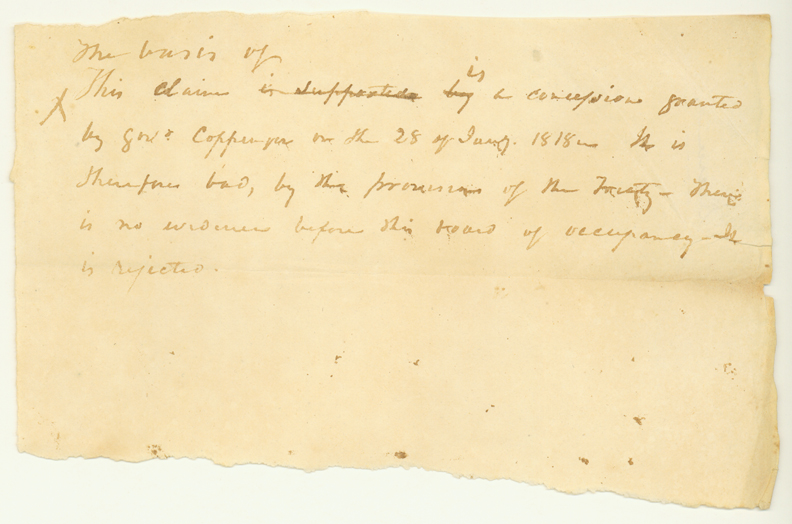 The basis of
This claim is supported by is a concession granted
by Gov.r Coppinger on the 28 of Jany. 1818 It is
therefore bad, by the provisions of the Treaty - There
is no evidence before this board of occupancy - It
is rejected.